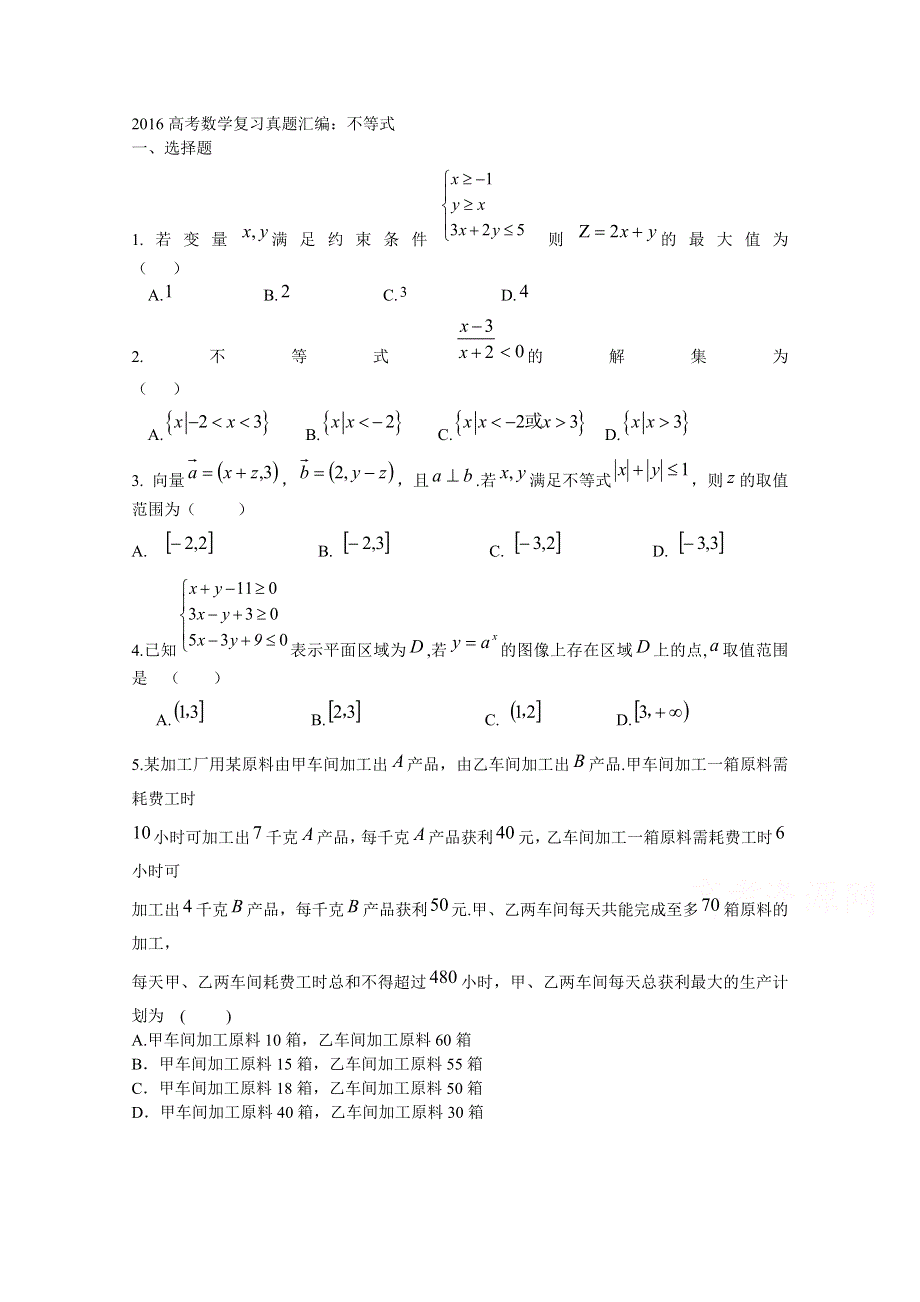 2016 高考数学复习真题汇编：不等式
一、选择题
1. 若变量 x, y 满足约束条件 { x ≥ −1  y ≥ x  3x + 2y ≤ 5 则 Z = 2x + y 的最大值为
（ ）
A. 1 B. 2 C. 3 D. 4
2. 不等式 (x − 3)/(x + 2) < 0 的解集为
（ ）
A. {x| −2 < x < 3} B. {x|x < −2} C. {x|x < −2或x > 3} D. {x|x > 3}
3. 向量 a⃗ = (x + z,3)，b⃗ = (2, y − z)，且 a ⊥ b .若 x, y 满足不等式 |x| + |y| ≤ 1，则 z 的取值
范围为（ ）
A. [−2,2] B. [−2,3] C. [−3,2] D. [−3,3]
4.已知 { x + y − 11 ≥ 0  3x − y + 3 ≥ 0  5x − 3y + 9 ≤ 0 表示平面区域为 D ,若 y = aˣ 的图像上存在区域 D 上的点, a 取值范围
是 （ ）
A. (1,3] B. [2,3] C. (1,2] D. [3, +∞)
5.某加工厂用某原料由甲车间加工出 A 产品，由乙车间加工出 B 产品.甲车间加工一箱原料需
耗费工时
10 小时可加工出 7 千克 A 产品，每千克 A 产品获利 40 元，乙车间加工一箱原料需耗费工时 6
小时可
加工出 4 千克 B 产品，每千克 B 产品获利 50 元.甲、乙两车间每天共能完成至多 70 箱原料的
加工，
每天甲、乙两车间耗费工时总和不得超过 480 小时，甲、乙两车间每天总获利最大的生产计
划为 ( )
A.甲车间加工原料 10 箱，乙车间加工原料 60 箱
B．甲车间加工原料 15 箱，乙车间加工原料 55 箱
C．甲车间加工原料 18 箱，乙车间加工原料 50 箱
D．甲车间加工原料 40 箱，乙车间加工原料 30 箱